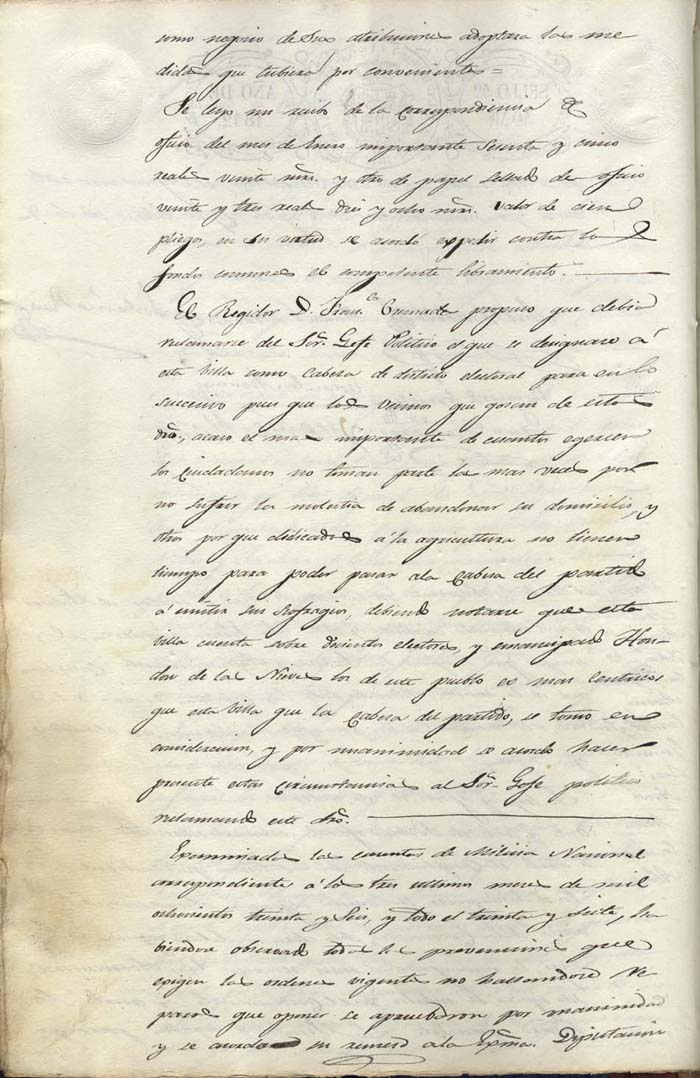 como negocio de sus atribuciones adoptara las me
didas que tubiera por conveniente =
Se leyo un recibo de la correspondencia de
oficio del mes de Enero importante sesenta y cinco
reales veinte mrs. y otro de papel sellado de oficio
veinte y tres reales diez y ocho mrs. valor de cien
pliegos, en su virtud se acordó expedir contra los
fondos comunes el competente libramiento.
El Regidor D. Franco. propuso que debia
reclamarse del Sor. Gefe Politico el que se designase á
esta Villa como Cabeza de distrito electoral para en lo
succesivo pues que los vecinos que gozan de este
dro., acaso el mas importante de cuantos egercen
los Ciudadanos no toman parte las mas veces por
no sufrir la molestia de abandonar su domicilio, y
otros por que dedicados á la agricultura no tienen
tiempo para poder pasar a la Cabeza del partido
á emitir sus Sofragios, debiendo notarse que esta
Villa cuenta sobre docientos electores, y emancipado Hon-
don de las Nieves los de este pueblo es mas centrico
que esta Villa que la Cabeza del partido, se tomo en
consideracion, y por unanimidad se acordo hacer
presente estas circunstancias al Sor. Gefe politico
reclamando este dro.
Examinadas las cuentas de Milicia Nacional
correspondiente á los tres ultimos meses de mil
ochocientos treinta y seis, y todo el treinta y siete, ha
biendose observado todas las prevenciones que
exigen las ordenes vigentes no hallandose re
paros que oponer se aprobaron por unanimidad
y se acordo su remesa a la Exma. Diputacion